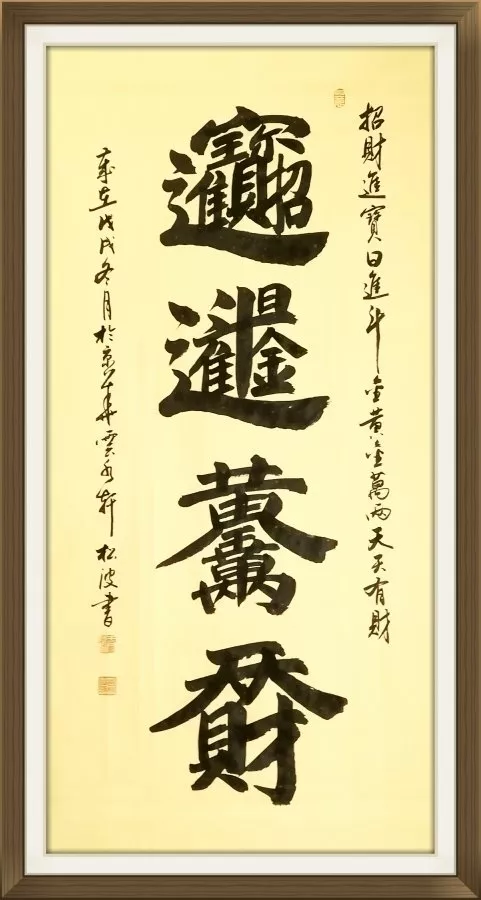 招財進寶日進斗金黃金萬兩天天有財
招財進寶
日進斗金
黃金萬兩
天天有財
歲在戊戌冬月於京華雲水軒松波書